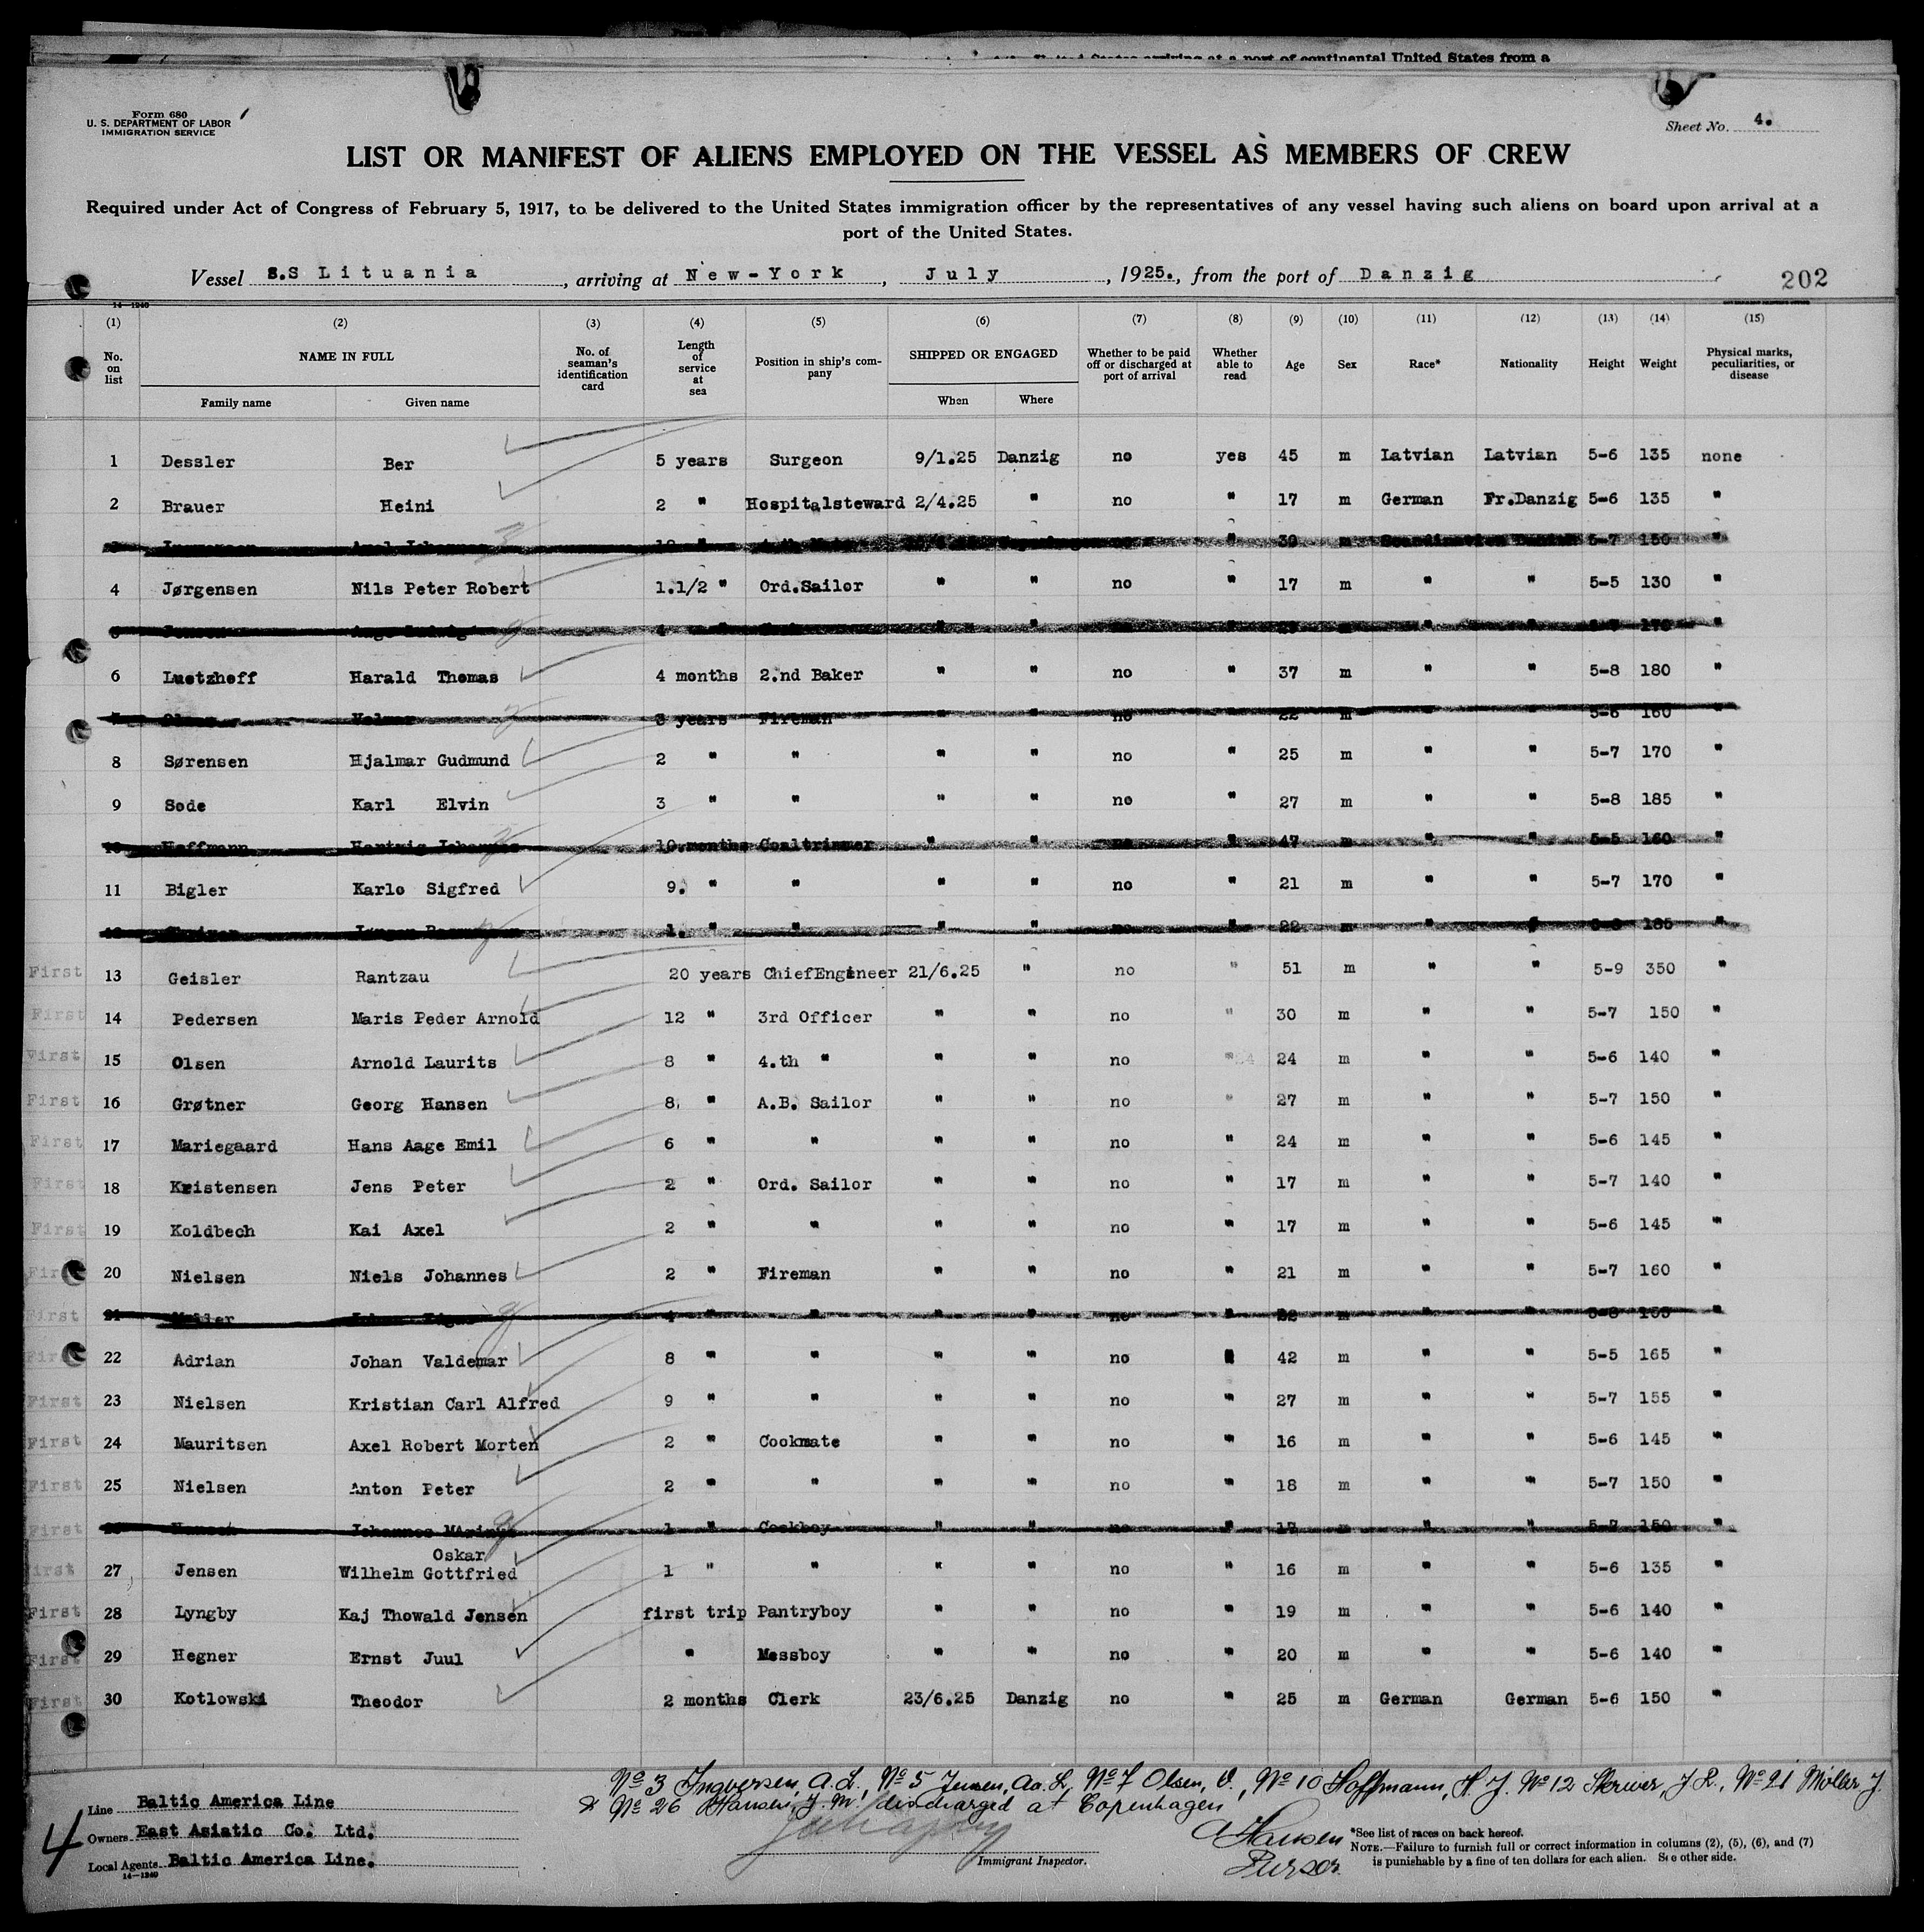 Form 680
U. S. DEPARTMENT OF LABOR
IMMIGRATION SERVICE
Sheet No. 4.
LIST OR MANIFEST OF ALIENS EMPLOYED ON THE VESSEL AS MEMBERS OF CREW
Required under Act of Congress of February 5, 1917, to be delivered to the United States immigration officer by the representatives of any vessel having such aliens on board upon arrival at a
port of the United States.
Vessel S.S Lituania, arriving at New-York, July, 1925., from the port of Danzig 202
14-1240
(1) (2) (3) (4) (5) (6) (7) (8) (9) (10) (11) (12) (13) (14) (15)
No. on list NAME IN FULL Family name Given name No. of seaman's identification card Length of service at sea Position in ship's company SHIPPED OR ENGAGED When Where Whether to be paid off or discharged at port of arrival Whether able to read Age Sex Race* Nationality Height Weight Physical marks, peculiarities, or disease
1 Dessler Ber 5 years Surgeon 9/1.25 Danzig no yes 45 m Latvian Latvian 5-6 135 none
2 Brauer Heini 2 " Hospitalsteward 2/4.25 " no " 17 m German Fr.Danzig 5-6 135 "
" 30 m 5-7 150 "
4 Jørgensen Nils Peter Robert 1.1/2 " Ord.Sailor " " no " 17 m " " 5-5 130 "
5 4 " " " " " " "
6 Luetzhoff Harald Thomas 4 months 2.nd Baker " " no " 37 m " " 5-8 180 "
7 3 years Fireman " " no " 22 m " " 5-6 160 "
8 Sørensen Hjalmar Gudmund 2 " " " " no " 25 m " " 5-7 170 "
9 Sode Karl Elvin 3 " " " " no " 27 m " " 5-8 185 "
10 Hoffmann Hartwig Johannes 10.months Coaltrimmer " " no " 47 m " " 5-5 160 "
11 Bigler Karlo Sigfred 9. " " " " no " 21 m " " 5-7 170 "
12 1. " " " " no " 22 m " " 185 "
First 13 Geisler Rantzau 20 years ChiefEngineer 21/6.25 " no " 51 m " " 5-9 350 "
First 14 Pedersen Maris Peder Arnold 12 " 3rd Officer " " no " 30 m " " 5-7 150 "
First 15 Olsen Arnold Laurits 8 " 4.th " " " no " 24 m " " 5-6 140 "
First 16 Grøtner Georg Hansen 8, " A.B. Sailor " " no " 27 m " " 5-7 150 "
First 17 Mariegaard Hans Aage Emil 6 " " " " no " 24 m " " 5-6 145 "
First 18 Kristensen Jens Peter 2 " Ord. Sailor " " no " 17 m " " 5-7 140 "
First 19 Koldbech Kai Axel 2 " " " " no " 17 m " " 5-6 145 "
First 20 Nielsen Niels Johannes 2 " Fireman " " no " 21 m " " 5-7 160 "
First 21 4 " " " " no " 22 m " " "
First 22 Adrian Johan Valdemar 8 " " " " no " 42 m " " 5-5 165 "
First 23 Nielsen Kristian Carl Alfred 9 " " " " no " 27 m " " 5-7 155 "
First 24 Mauritsen Axel Robert Morten 2 " Cookmate " " no " 16 m " " 5-6 145 "
First 25 Nielsen Anton Peter 2 " " " " no " 18 m " " 5-7 150 "
First 26 Hansen Johannes Marinus 1 " Cookboy " " no " 17 m " " 5-7 150 "
First 27 Jensen Oskar
Wilhelm Gottfried 1 " " " " no " 16 m " " 5-6 135 "
First 28 Lyngby Kaj Thowald Jensen first trip Pantryboy " " no " 19 m " " 5-6 140 "
First 29 Hegner Ernst Juul " Messboy " " no " 20 m " " 5-6 140 "
First 30 Kotlowski Theodor 2 months Clerk 23/6.25 Danzig no " 25 m German German 5-6 150 "
No 3 Ingversen, A.L., No 5 Jensen, Aa. L, No 7 Olsen, V., No 10 Hoffmann, H. J. No 12 Skriver, J R., No 21 Møller J.
& No 26 Hansen, J. M. discharged at Copenhagen
Line Baltic America Line
Owners East Asiatic Co. Ltd.
Local Agents Baltic America Line.
14-1240
4
Immigrant Inspector.
A Hansen
Purser
*See list of races on back hereof.
NOTE.—Failure to furnish full or correct information in columns (2), (5), (6), and (7)
is punishable by a fine of ten dollars for each alien. See other side.